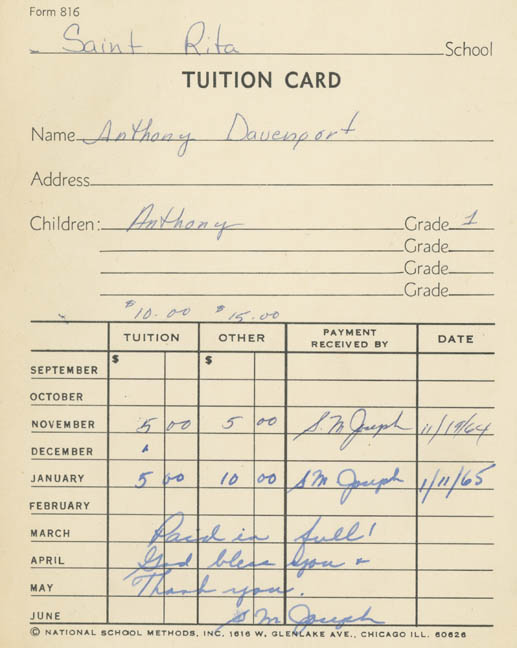 Form 816
Saint Rita School
TUITION CARD
Name Anthony Davenport
Address
Children: Anthony Grade 1
Grade
Grade
Grade
$10.00 $15.00
TUITION OTHER PAYMENT RECEIVED BY DATE
$ $
SEPTEMBER
OCTOBER
NOVEMBER 5 00 5 00 S. M Joseph 11/19/64
DECEMBER
JANUARY 5 00 10 00 S M Joseph 1/11/65
FEBRUARY
MARCH Paid in full!
APRIL God bless you &
MAY Thank you.
JUNE S M Joseph
© NATIONAL SCHOOL METHODS, INC. 1616 W. GLENLAKE AVE., CHICAGO ILL. 60626